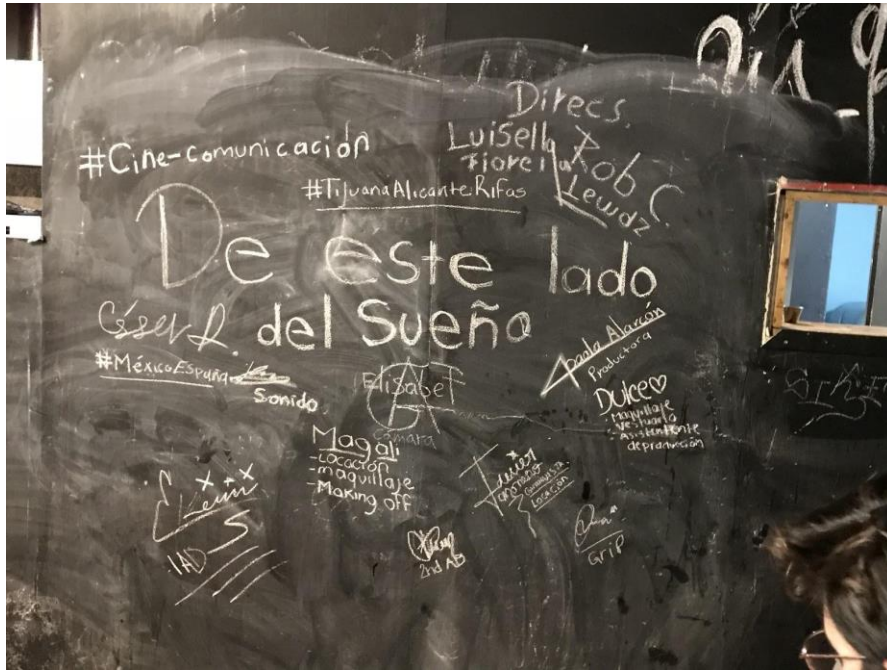 Direcs.
#Cine-comunicación
Luisella
Fiorella
Rob C.
Lewdz
#TijuanaAlicanteRifas
De este lado
del Sueño
#MéxicoEspaña
Sonido
Elisabet
Cámara
Paola Alarcón
Productora
Dulce♡
- Maquillaje
- vestuario
- Asistentente
de producción
Magali
- Locación
- maquillaje
- Making off
Locación
Kevin
1AD
2nd AD
Grip